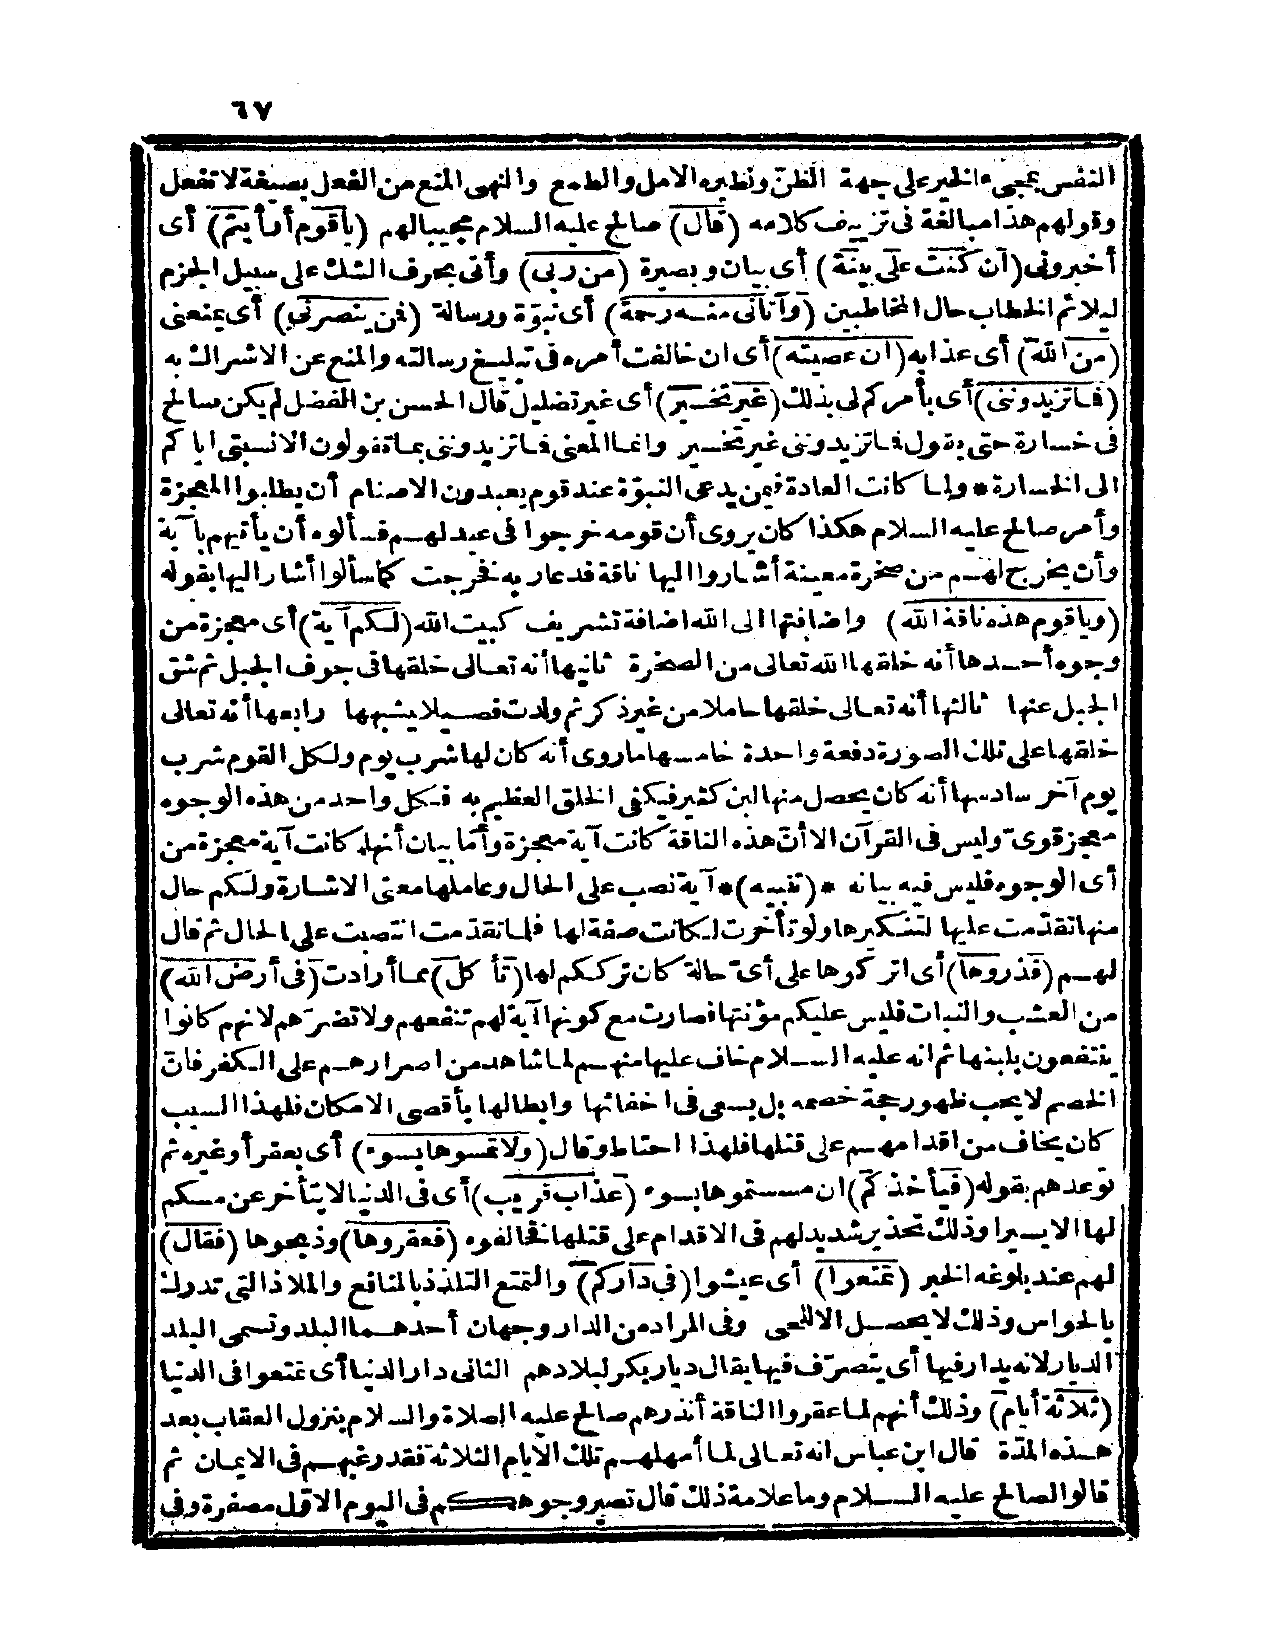 ٦٧
النفس بمجىء الخير على جهة الظنّ ونظيره الامل والطمع والنهى المنع من الفعل بصيغة لا تفعل
وقولهم هذا مبالغة فى تزييف كلامه (قال) صالح عليه السلام مجيبا لهم (ياقوم أرأيتم) أى
أخبرونى (ان كنت على بينة) أى بيان وبصيرة (من ربى) وأتى بحرف الشك على سبيل الجزم
ليلائم الخطاب حال المخاطبين (وآتانى منه رحمة) أى نبوّة ورسالة (فمن ينصرنى) أى يمنعنى
(من الله) أى عذابه (ان عصيته) أى ان خالفت أمره فى تبليغ رسالته والمنع عن الاشراك به
(فما تزيدوننى) أى بأمركم لى بذلك (غير تخسير) أى غير تضليل قال الحسن بن الفضل لم يكن صالح
فى خسارة حتى يقول فما تزيدوننى غير تخسير وانما المعنى فما تزيدوننى بما تقولون الا نسبتى اياكم
الى الخسارة * ولما كانت العادة فيمن يدعى النبوّة عند قوم يعبدون الاصنام أن يطلبوا المعجزة
وأمر صالح عليه السلام هكذا كان يروى أن قومه خرجوا فى عيد لهم فسألوه أن يأتيهم بآية
وأن يخرج لهم من صخرة معينة أشاروا اليها ناقة فدعا ربه فخرجت كما سألوا أشار اليها بقوله
(وياقوم هذه ناقة الله) واضافتها الى الله اضافة تشريف كبيت الله (لكم آية) أى معجزة من
وجوه أحدها أنه خلقها الله تعالى من الصخرة ثانيها أنه تعالى خلقها فى جوف الجبل ثم شق
الجبل عنها ثالثها أنه تعالى خلقها حاملا من غير ذكر ثم ولدت فصيلا يشبهها رابعها أنه تعالى
خلقها على تلك الصورة دفعة واحدة خامسها ما روى أنه كان لها شرب يوم ولكل القوم شرب
يوم آخر سادسها أنه كان يحصل منها لبن كثير فيكفى الخلق العظيم به فكل واحد من هذه الوجوه
معجز قوىّ وليس فى القرآن الا أنّ هذه الناقة كانت آية معجزة وأمّا بيان أنها كانت آية معجزة من
أى الوجوه فليس فيه بيانه * (تنبيه) * آية نصب على الحال وعاملها معنى الاشارة ولكم حال
منها تقدّمت عليها لتنكيرها ولو تأخرت لكانت صفة لها فلما تقدمت انتصبت على الحال ثم قال
لهم (فذروها) أى اتركوها على أىّ حالة كان ترككم لها (تأكل) مما أرادت (فى أرض الله)
من العشب والنبات فليس عليكم مؤنتها فصارت مع كونها آية لهم تنفعهم ولا تضرّهم لانهم كانوا
ينتفعون بلبنها ثم انه عليه السلام خاف عليها منهم لما شاهد من اصرارهم على الكفر فانّ
الخصم لا يحب ظهور حجة خصمه بل يسعى فى اخفائها وابطالها بأقصى الامكان فلهذا السبب
كان يخاف من اقدامهم على قتلها فلهذا احتاط وقال (ولا تمسوها بسوء) أى بعقر أو غيره ثم
توعدهم بقوله (فيأخذكم) ان مسستموها بسوء (عذاب قريب) أى فى الدنيا لا يتأخر عن مسكم
لها الا يسيرا وذلك تحذير شديد لهم فى الاقدام على قتلها فخالفوه (فعقروها) وذبحوها (فقال)
لهم عند بلوغه الخبر (تمتعوا) أى عيشوا (فى داركم) والتمتع التلذذ بالمنافع والملاذ التى تدرك
بالحواس وذلك لا يحصل الا للحى وفى المراد من الدار وجهان أحدهما البلد وتسمى البلد
الديار لانه يدار فيها أى يتصرّف فيها يقال ديار بكر لبلادهم الثانى دار الدنيا أى تمتعوا فى الدنيا
(ثلاثة أيام) وذلك أنهم لما عقروا الناقة أنذرهم صالح عليه الصلاة والسلام بنزول العقاب بعد
هذه المدّة قال ابن عباس انه تعالى لما أمهلهم تلك الايام الثلاثة فقد رغبهم فى الايمان ثم
قالوا لصالح عليه السلام وما علامة ذلك قال تصير وجوهكم فى اليوم الاوّل مصفرة وفى